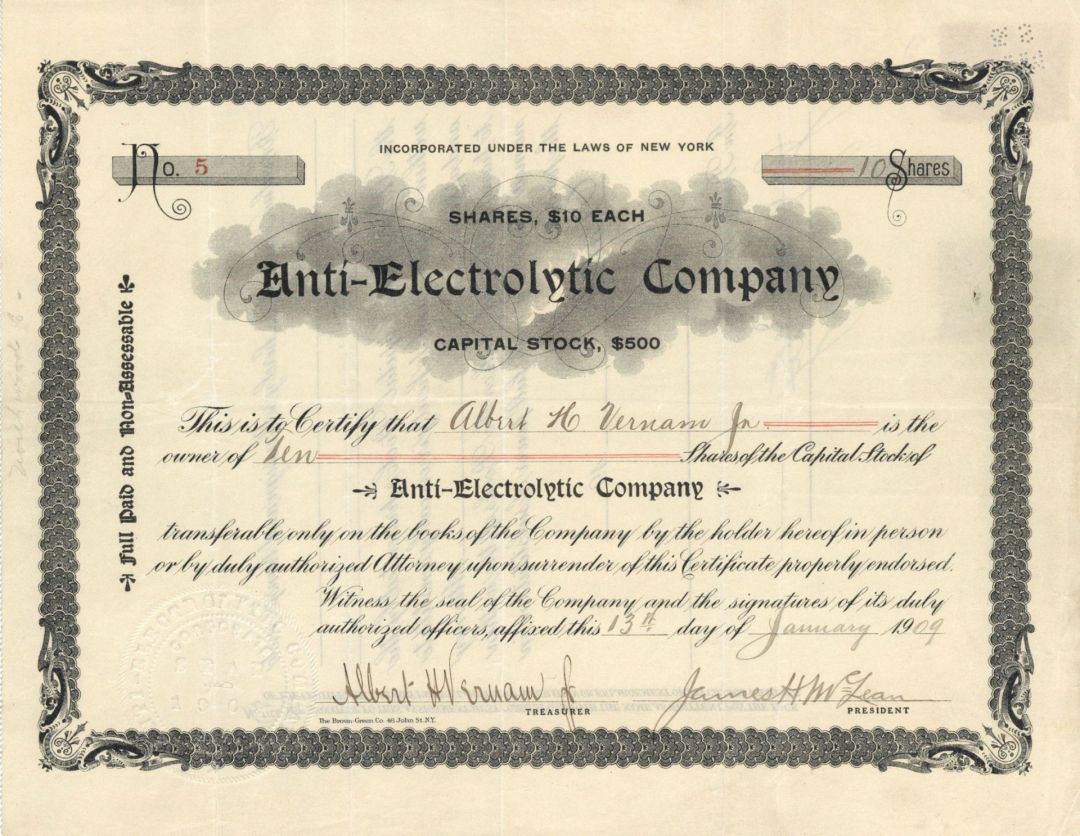 INCORPORATED UNDER THE LAWS OF NEW YORK
No. 5
10 Shares
SHARES, $10 EACH
Anti-Electrolytic Company
CAPITAL STOCK, $500
Full Paid and Non-Assessable
This is to Certify that Albert H Vernam Jr is the
owner of Ten Shares of the Capital Stock of
Anti-Electrolytic Company
transferable only on the books of the Company by the holder hereof in person
or by duly authorized Attorney upon surrender of this Certificate properly endorsed.
Witness the seal of the Company and the signatures of its duly
authorized officers, affixed this 13th day of January 1909
Albert H Vernam Jr
TREASURER
James H McLean
PRESIDENT
The Brown-Green Co. 48 John St. N.Y.